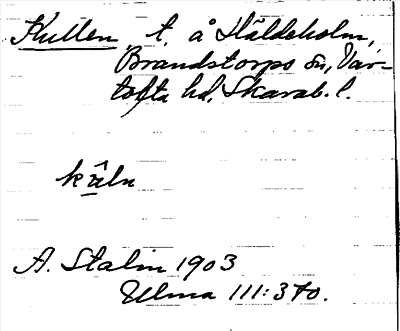 Kullen, t. å Häldeholm,
Brandstorps sn, Var-
tofta hd, Skarab. l.
A. Stalin 1903
Ulma 111:370.